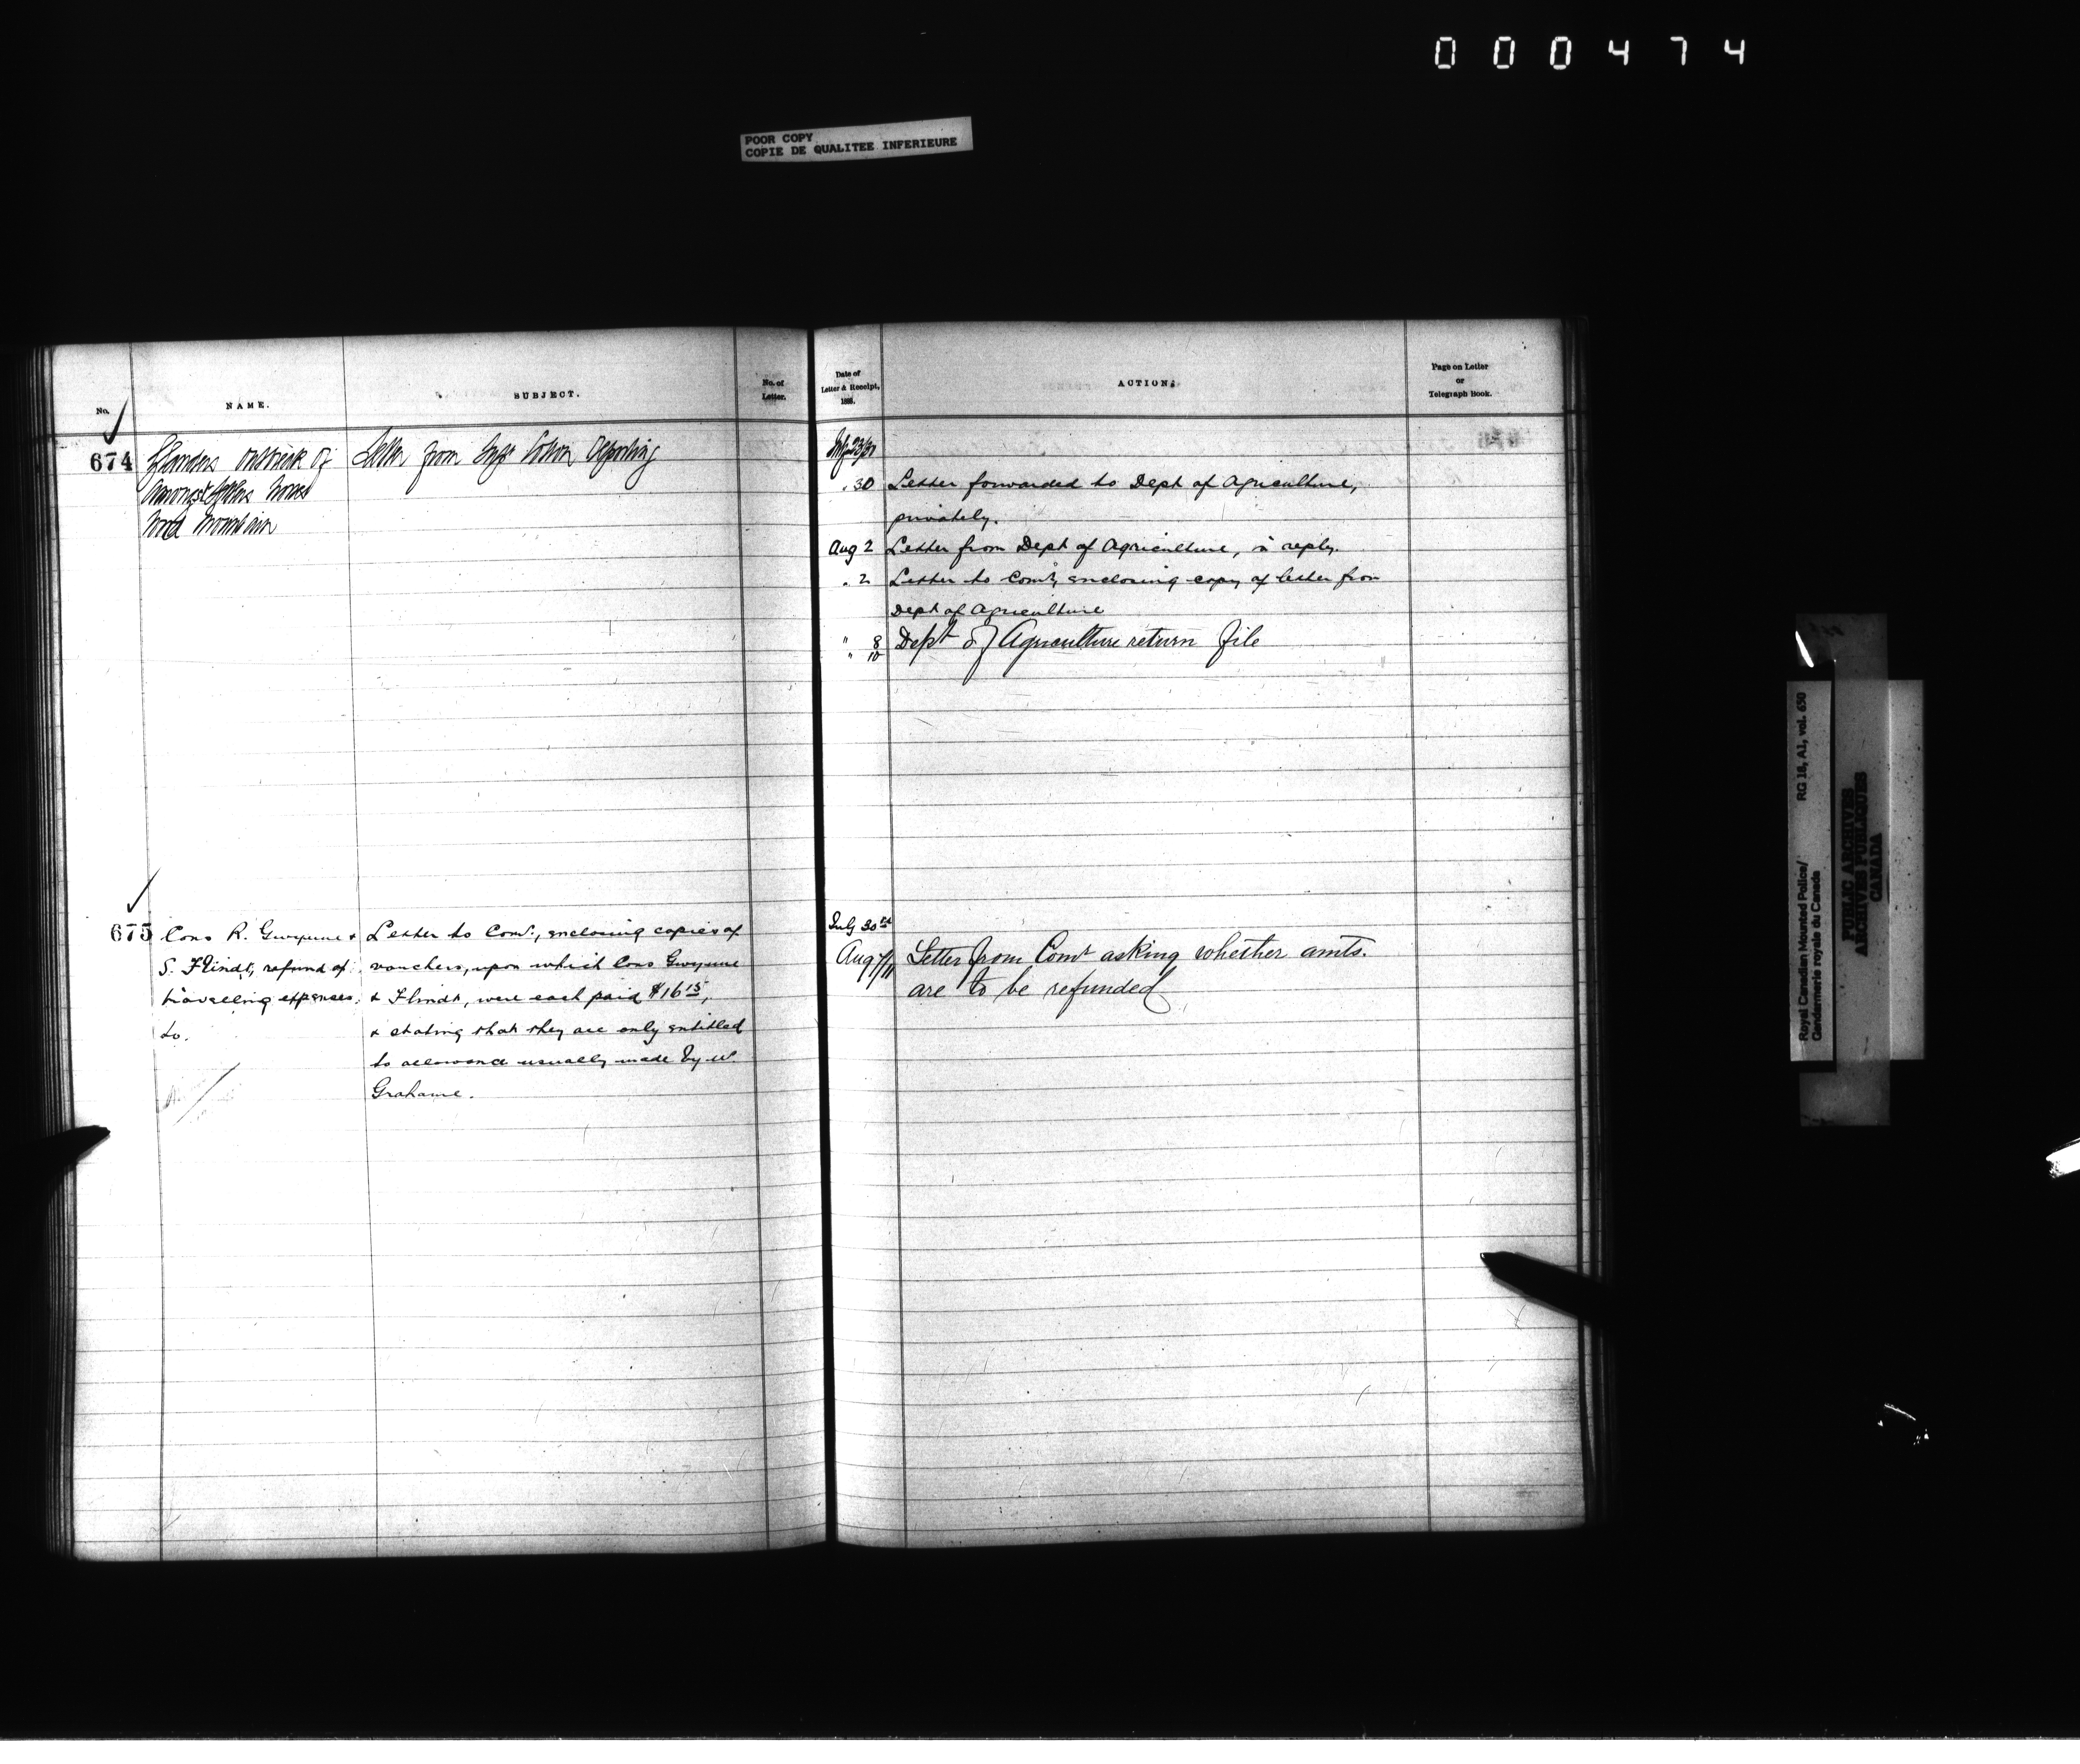 000474
POOR COPY
COPIE DE QUALITEE INFERIEURE
No.
NAME.
SUBJECT.
No. of
Letter.
Date of
Letter & Receipt,
188 .
ACTION.
Page on Letter
or
Telegraph Book.
674
Glanders outbreak of
amongst settlers horses
Wood Mountain
Letter from Supt Cotton reporting
July 23/30
" 30 Letter forwarded to Dept of Agriculture,
privately.
Aug 2 Letter from Dept of Agriculture, in reply.
" 2 Letter to Comr, enclosing copy of letter from
Dept of Agriculture
" 8 Dept of Agriculture return file
" 10
675
Cons R. Gwynne &
S. Flindt, refund of
travelling expenses,
to.
Letter to Comr., enclosing copies of
vouchers, upon which Cons Gwynne
& Flindt, were each paid $16 15,
& stating that they are only entitled
to allowance usually made by Mr.
Grahame.
July 30
Aug 7/11 Letter from Comr asking whether amts.
are to be refunded
Royal Canadian Mounted Police/
Gendarmerie royale du Canada
RG 18, A1, vol. 650
PUBLIC ARCHIVES
ARCHIVES PUBLIQUES
CANADA